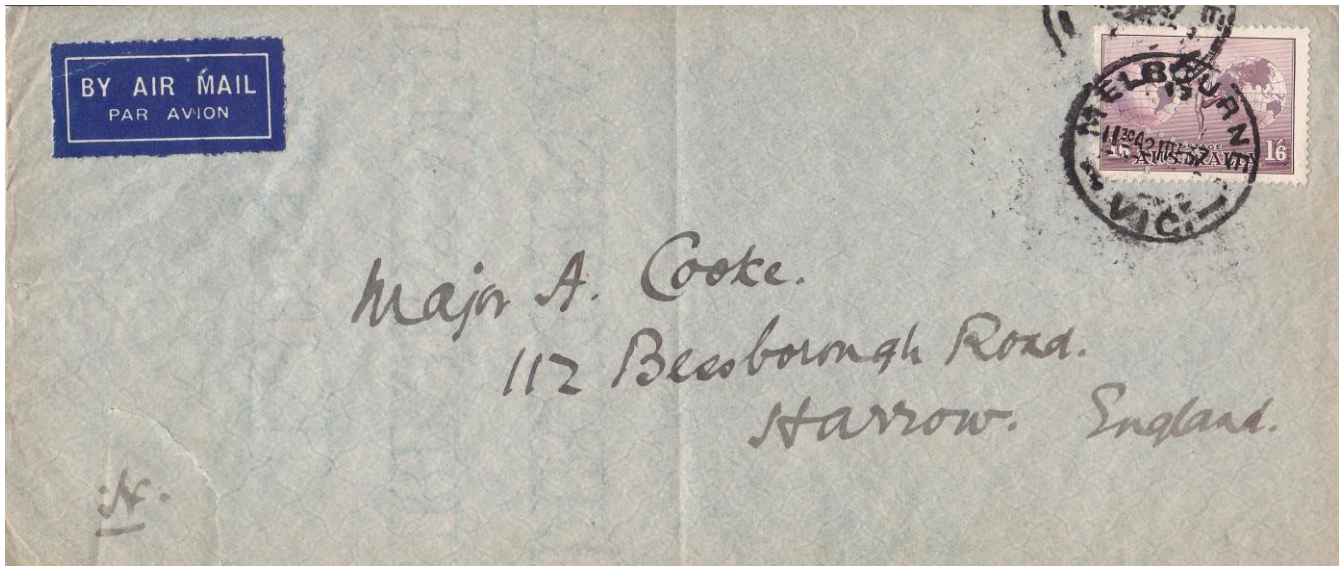 BY AIR MAIL
PAR AVION
MELBOURNE
VIC.
AUSTRALIA
1'6
Major A. Cooke.
112 Bessborough Road.
Harrow. England.